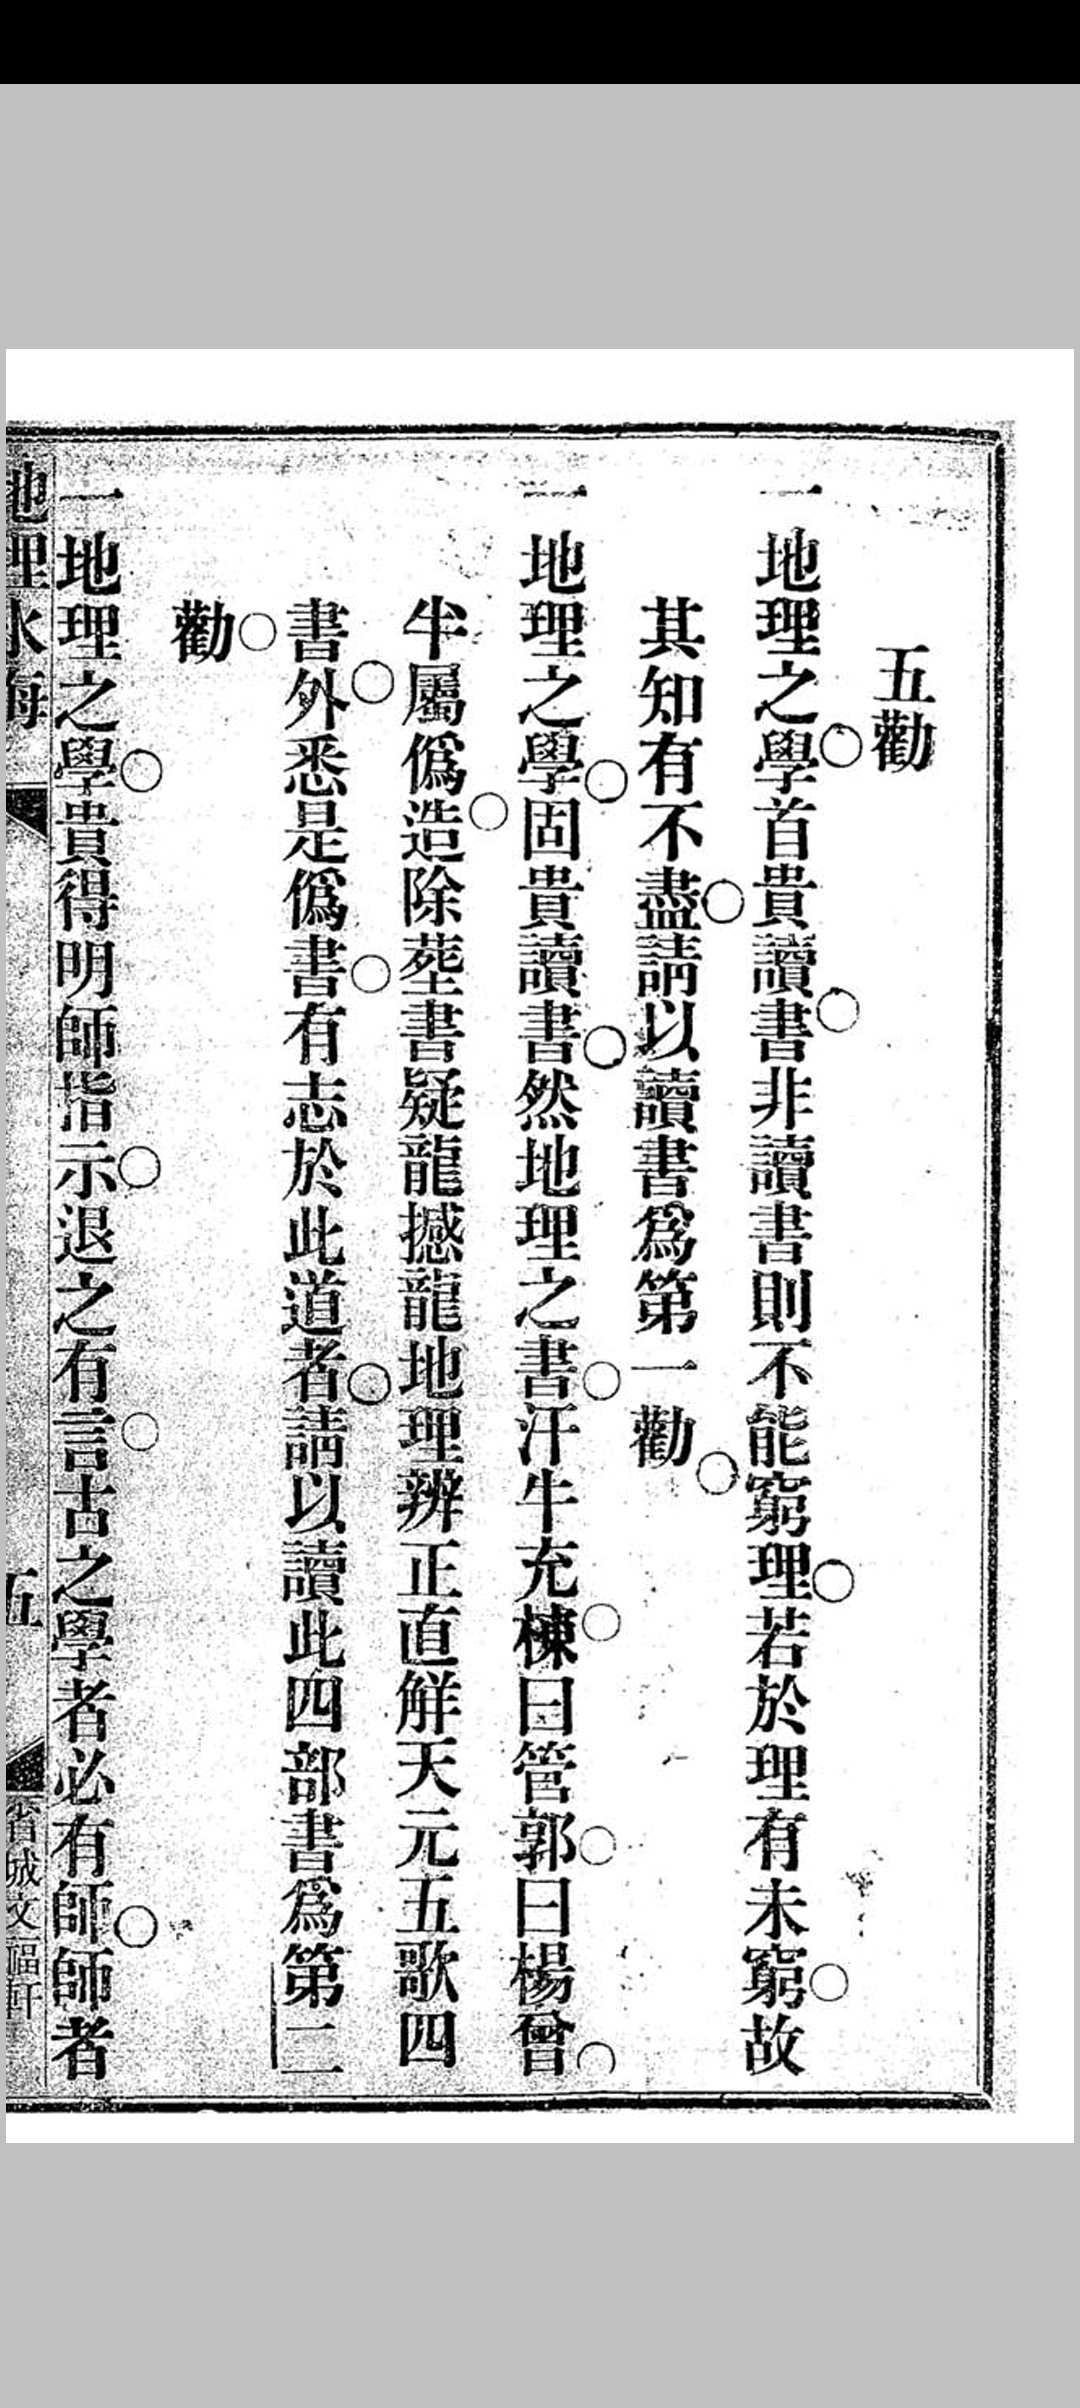 五勸
一地理之學首貴讀書非讀書則不能窮理若於理有未窮故
其知有不盡請以讀書爲第一勸
一地理之學固貴讀書然地理之書汗牛充棟曰管郭曰楊曾
半屬僞造除塟書疑龍撼龍地理辨正直觧天元五歌四
書外悉是僞書有志於此道者請以讀此四部書爲第二
勸
一地理之學貴得明師指示退之有言古之學者必有師師者
地理水海 五 省城文福軒